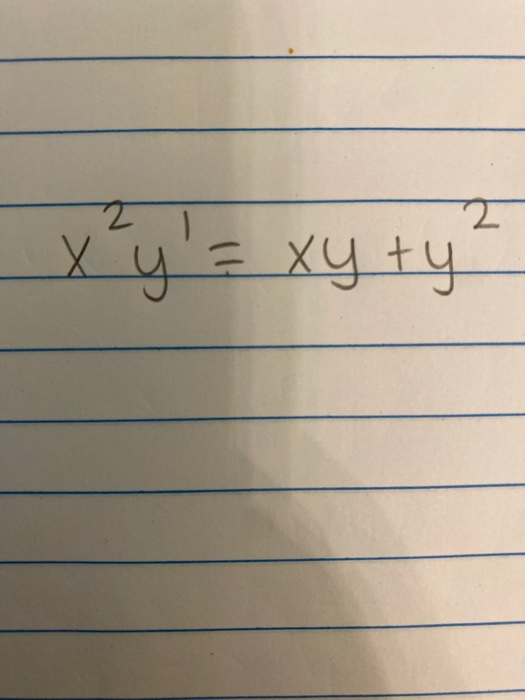 x²y' = xy + y²